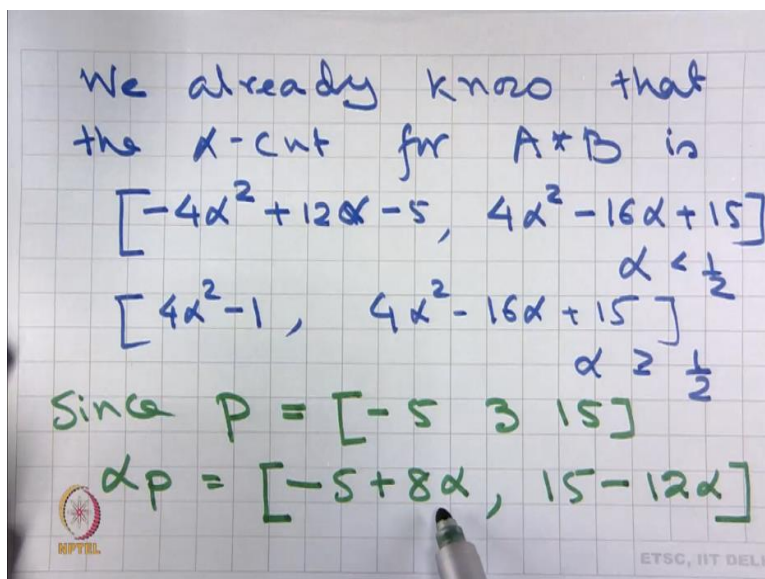 We already know that
the α-cut for A*B is
[-4α² + 12α - 5, 4α² - 16α + 15]
α < 1/2
[4α² - 1, 4α² - 16α + 15]
α ≥ 1/2
Since P = [-5 3 15]
αP = [-5 + 8α, 15 - 12α]
NPTEL
ETSC, IIT DEL